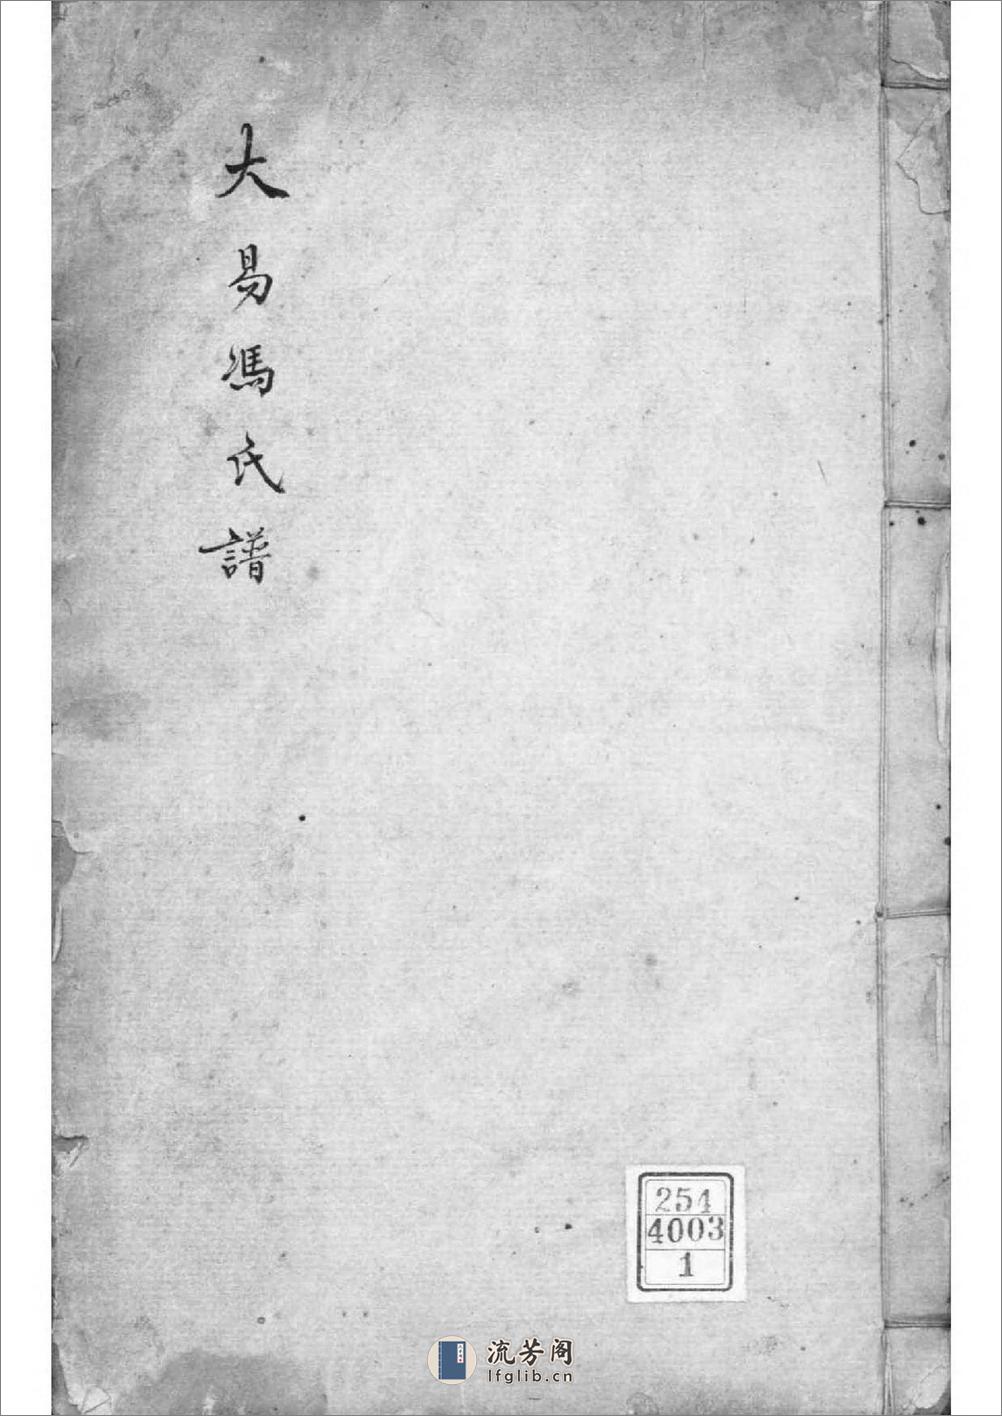 大易馮氏譜
254
4003
1
流芳阁
lfglib.cn